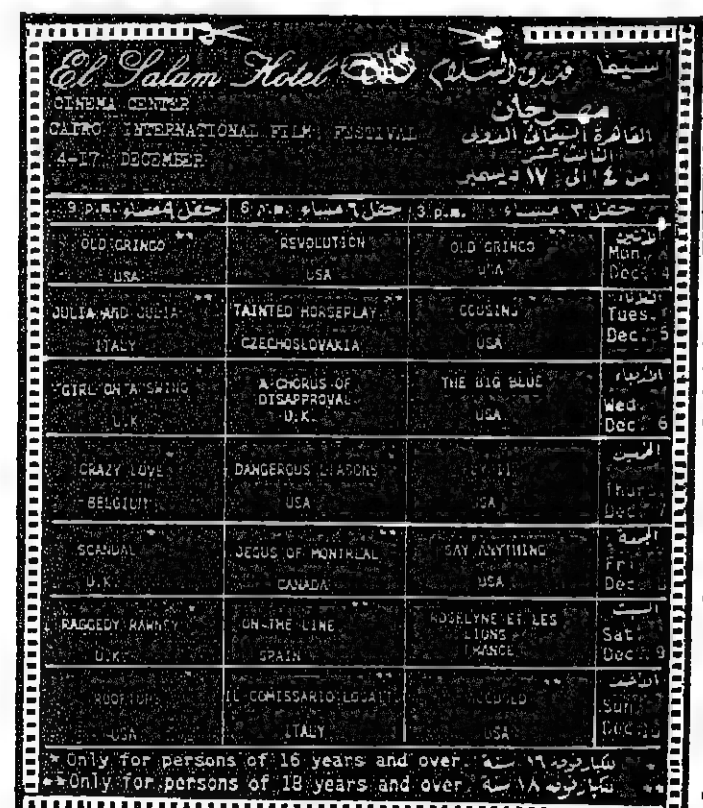 El Salam Hotel فندق السلام سينما
CINEMA CENTER
CAIRO INTERNATIONAL FILM FESTIVAL
4-17 DECEMBER
مهرجان
القاهرة السينمائى الدولى
الثالث عشر
من ٤ الى ١٧ ديسمبر
9 p.m. حفل ٩ مساء 6 p.m. حفل ٦ مساء 3 p.m. حفل ٣ مساء
OLD GRINGO **
USA
REVOLUTION
USA
OLD GRINGO **
USA
الاثنين
Mon.
Dec. 4
JULIA AND JULIA **
ITALY
TAINTED HORSEPLAY **
CZECHOSLOVAKIA
COUSINS
USA
Tues.
Dec. 5
GIRL ON A SWING
U.K.
A CHORUS OF
DISAPPROVAL
U.K.
THE BIG BLUE
USA
الاربعاء
Wed.
Dec. 6
CRAZY LOVE
BELGIUM
DANGEROUS LIASONS
USA
USA
الخميس
Thurs.
Dec. 7
SCANDAL
U.K.
JESUS OF MONTREAL **
CANADA
SAY ANYTHING
USA
الجمعة
Fri.
Dec.
RAGGEDY RAWNEY
U.K.
ON THE LINE **
SPAIN
ROSELYNE ET LES
LIONS
FRANCE
السبت
Sat.
Dec. 9
ROOFTOPS
USA
IL COMISSARIO
ITALY
USA
الاحد
Sun.
Dec.
* Only for persons of 16 years and over. للكبار فوق ١٦ سنة *
** Only for persons of 18 years and over. للكبار فوق ١٨ سنة **